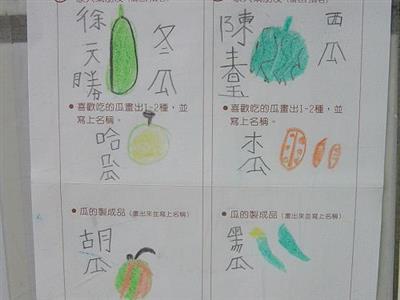 徐天勝
冬瓜
陳
西瓜
●喜歡吃的瓜畫出1~2種，並
寫上名稱。
●喜歡吃的瓜畫出1~2種，並
寫上名稱。
哈
木瓜
●瓜的製成品（畫出來並寫上名稱）
●瓜的製成品（畫出來並寫上名稱）
胡瓜
黑瓜